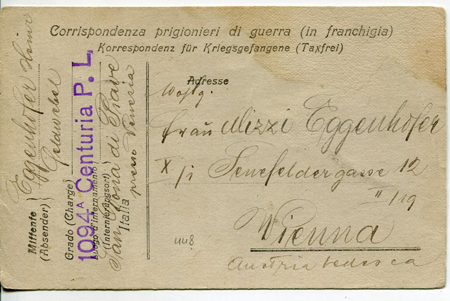 Corrispondenza prigionieri di guerra (in franchigia)
Korrespondenz für Kriegsgefangene (Taxfrei)
Mittente (Absender) Eggenhofer
Grado (Charge) Feldwebel
Luogo d'internamento (Internierungsort) San Dona di Piave
presso Venezia
Italia
1094ª Centuria P. L.
Adresse
Frau Mizzi Eggenhofer
X/1 Senefeldergasse 12
II/19
Vienna
Austria tedesca
4448